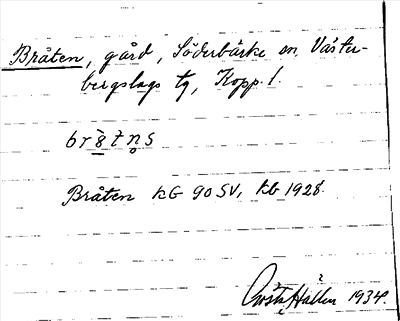 Bråten, gård, Söderbärke sn, Väster-
bergslags tg, Kopp. l.
Bråten kG 90 SV, kb 1928.
Gösta Hallén 1934.